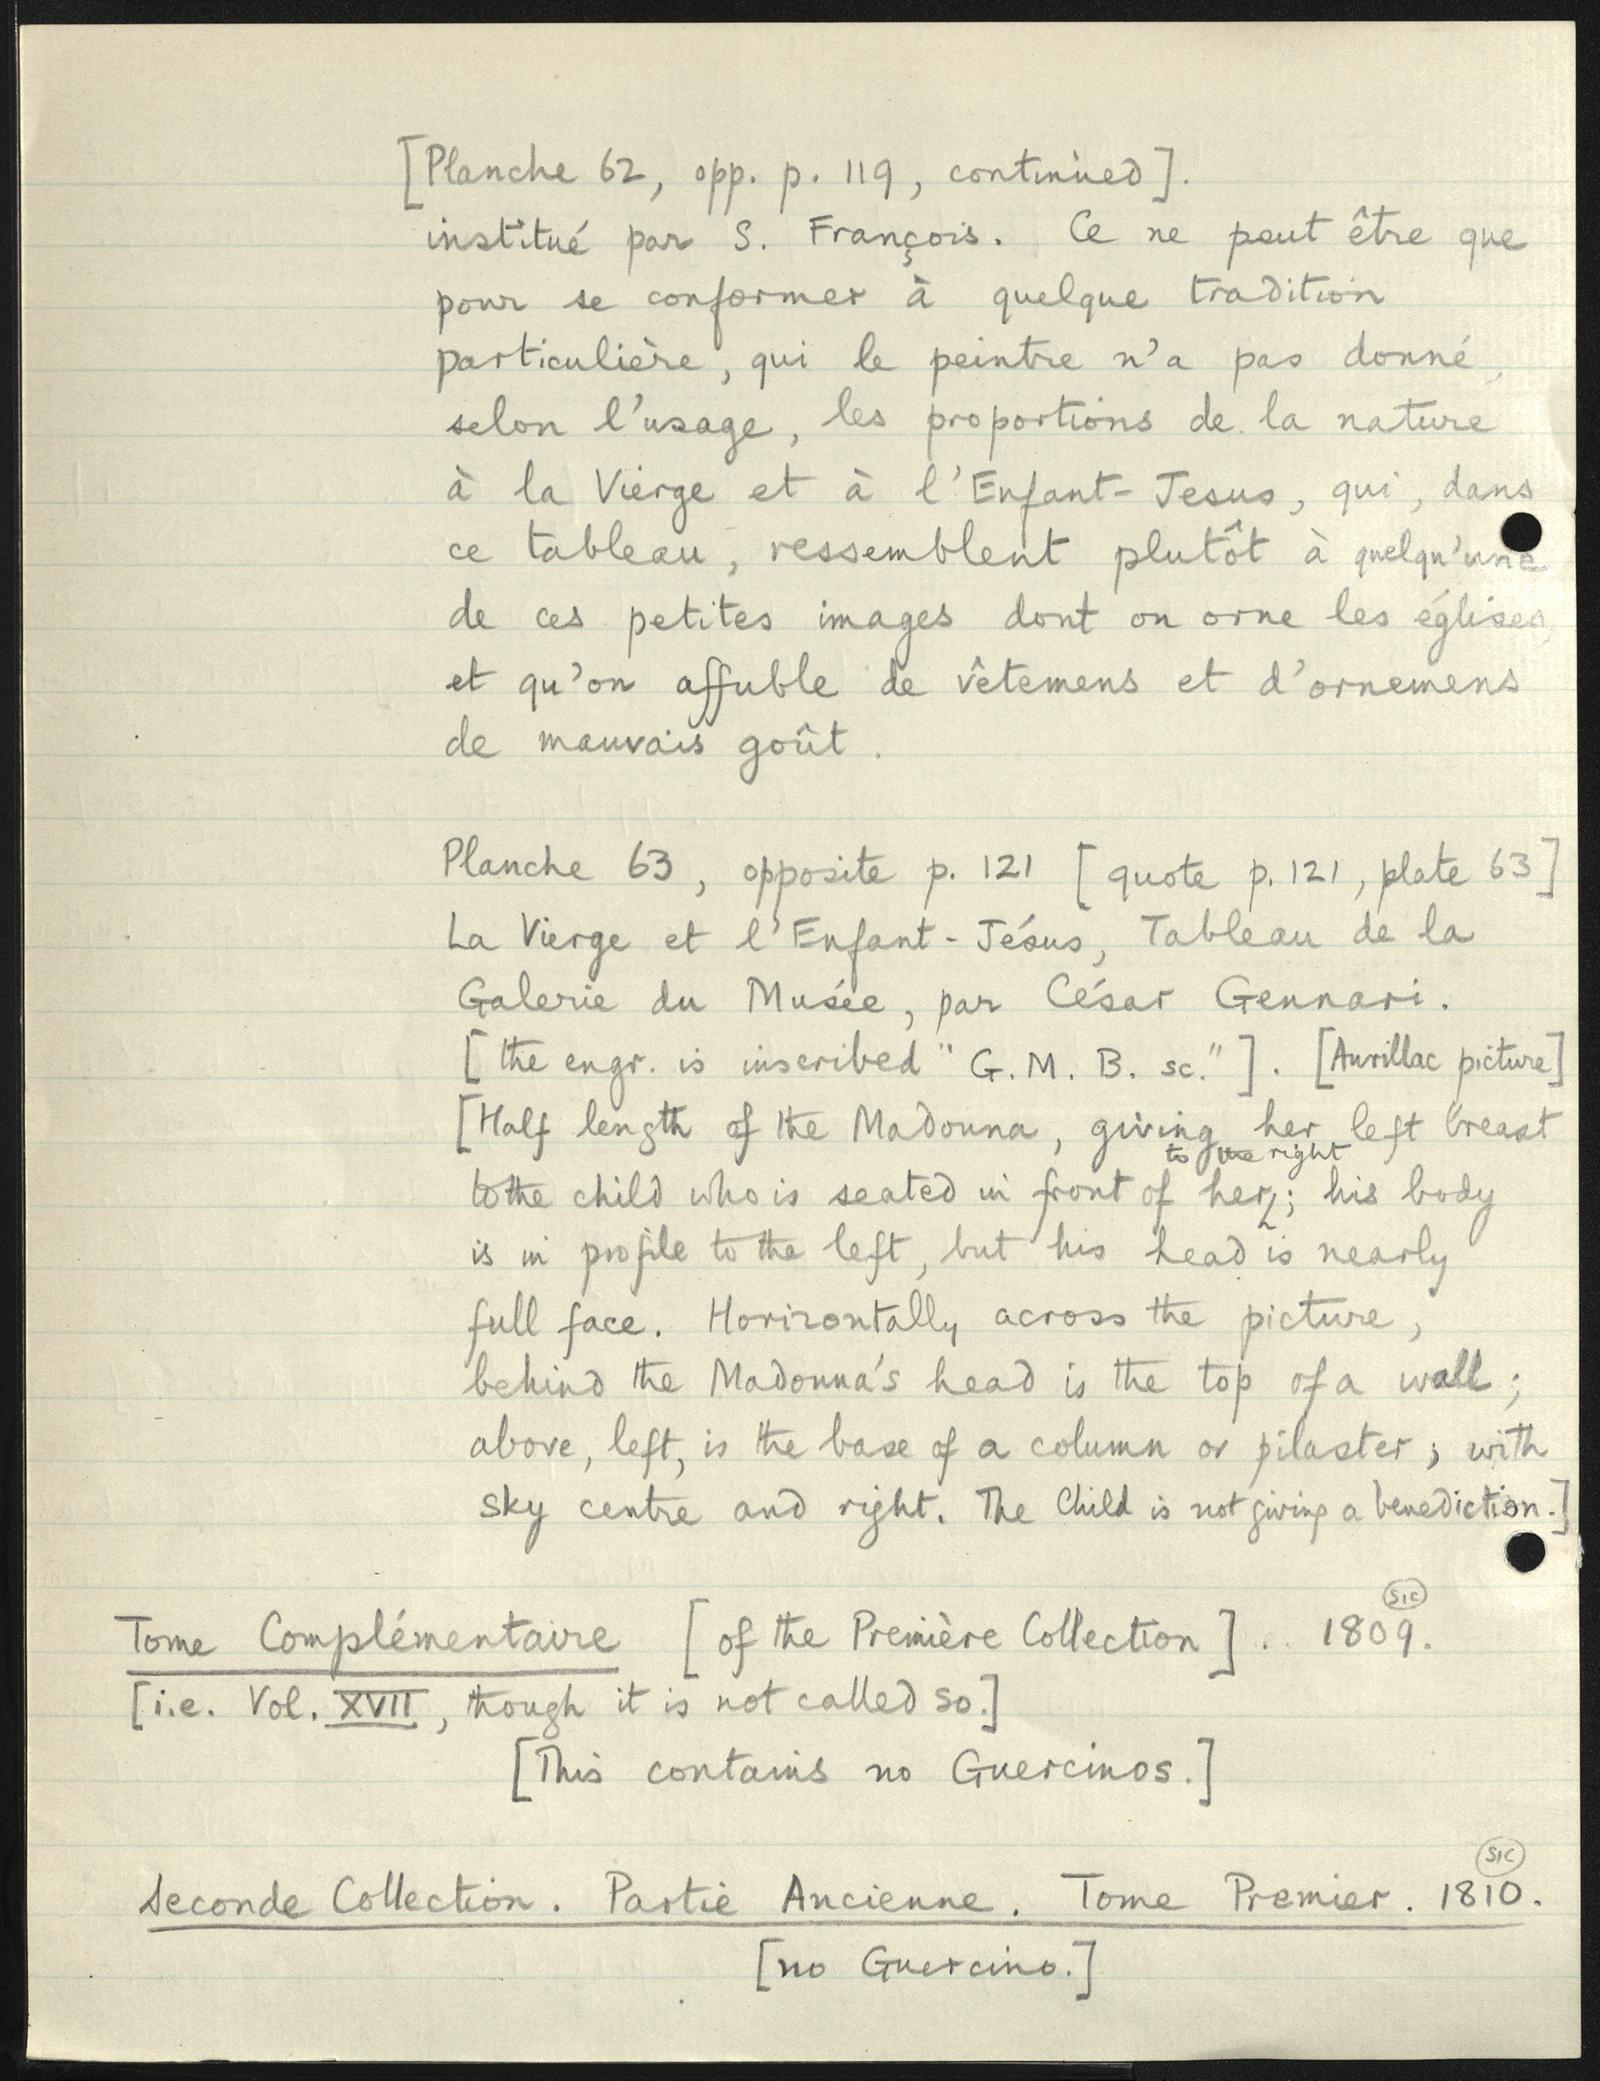 [Planche 62, opp. p. 119, continued].
institué par S. François. Ce ne peut être que
pour se conformer à quelque tradition
particulière, qui le peintre n'a pas donné,
selon l'usage, les proportions de la nature
à la Vierge et à l'Enfant-Jesus, qui, dans
ce tableau, ressemblent plutôt à quelqu'une
de ces petites images dont on orne les églises,
et qu'on affuble de vêtemens et d'ornemens
de mauvais goût.
Planche 63, opposite p. 121 [quote p. 121, plate 63]
La Vierge et l'Enfant-Jésus, Tableau de la
Galerie du Musée, par César Gennari.
[the engr. is inscribed "G. M. B. sc."]. [Aurillac picture]
[Half length of the Madonna, giving her left breast
to the right
to the child who is seated in front of her; his body
is in profile to the left, but his head is nearly
full face. Horizontally across the picture,
behind the Madonna's head is the top of a wall;
above, left, is the base of a column or pilaster; with
sky centre and right. The Child is not giving a benediction.]
sic
Tome Complémentaire [of the Première Collection]. 1809.
[i.e. Vol. XVII, though it is not called so.]
[This contains no Guercinos.]
sic
Seconde Collection. Partie Ancienne. Tome Premier. 1810.
[no Guercino.]